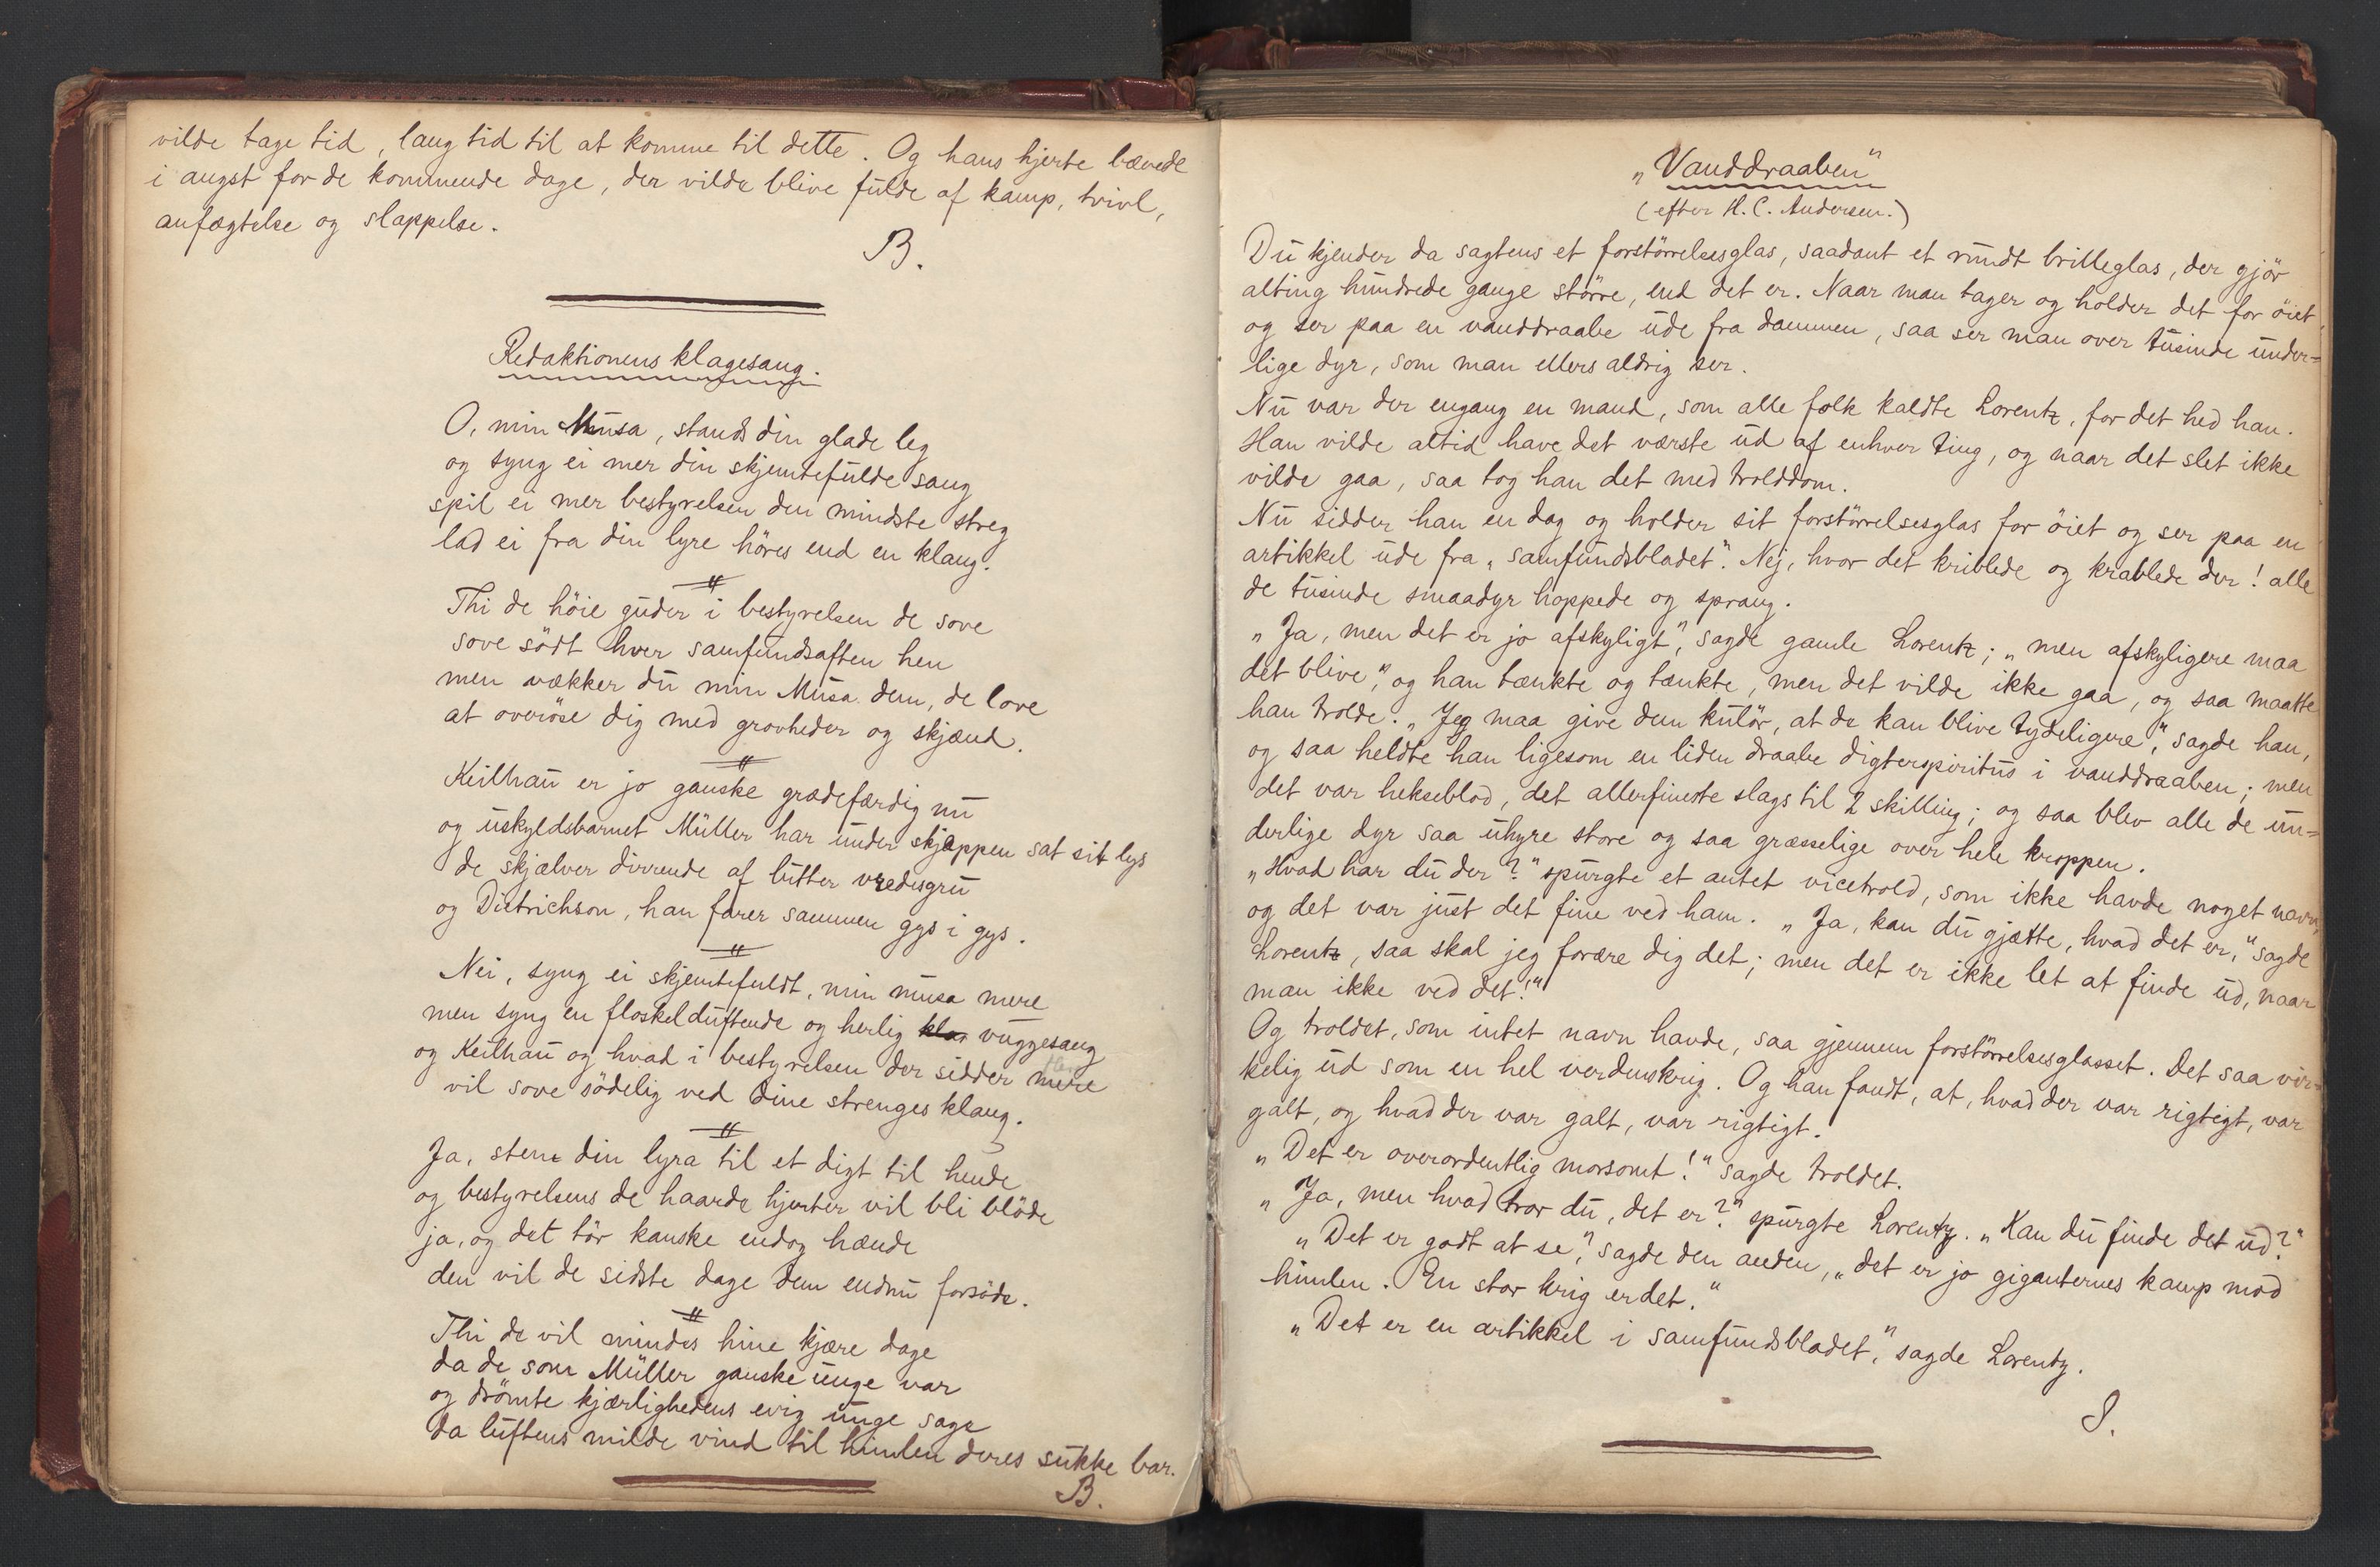 vilde tage tid, lang tid til at komme til dette. Og hans hjerte bævede
i angst for de kommende dage, der vilde blive fulde af kamp, tvivl,
anfægtelse og slappelse.
B.
Redaktionens klagesang.
O, min Musa, stands din glade leg
og syng ei mer din skjemtefulde sang
spil ei mer bestyrelsen den mindste streg
lad ei fra din lyre höres end en klang.
Thi de höie guder i bestyrelsen de sove
sove södt hver samfundsaften hen
men vækker du min Musa dem, de love
at overöse dig med grovheder og skjænd.
Keilhau er jo ganske grædefærdig nu
og uskyldsbarnet Müller har under skjæppen sat sit lys
de skjælver dirrende af bitter vredesgru
og Dietrichson, han farer sammen gys i gys.
Nei, syng ei skjemtefuldt, min musa mere
men syng en floskelduftende og herlig klas vuggesang
og Keilhau og hvad i bestyrelsen der sidder mere
vil sove södelig ved dine strenges klang.
Ja, stem din lyra til et digt til hende
og bestyrelsens de haarde hjerter vil bli blöde
ja, og det tör kanske endog hænde
den vil de sidste dage dem endnu forsöde.
Thi de vil mindes hine kjære dage
da de som Müller ganske unge var
og drömte kjærlighedens evig unge sage
da luftens milde vind til himlen deres sukke bar.
B.
„Vanddraaben"
(efter H. C. Andersen.)
Du kjender da sagtens et forstörrelsesglas, saadant et rundt brilleglas, der gjör
alting hundrede gange större, end det er. Naar man tager og holder det for öiet
og ser paa en vanddraabe ude fra dammen, saa ser man over tusinde under=
lige dyr, som man ellers aldrig ser.
Nu var der engang en mand, som alle folk kaldte Lorentz, for det hed han.
Han vilde altid have det værste ud af enhver ting, og naar det slet ikke
vilde gaa, saa tog han det med trolddom.
Nu sidder han en dag og holder sit forstörrelsesglas for öiet og ser paa en
artikkel ude fra „samfundsbladet". Nej, hvor det kriblede og krablede der! alle
de tusinde smaadyr hoppede og sprang.
„Ja, men det er jo afskyligt", sagde gamle Lorentz; „men afskyligere maa
det blive", og han tænkte og tænkte, men det vilde ikke gaa, og saa maatte
han trolde. „Jeg maa give dem kulör, at de kan blive tydeligere", sagde han,
og saa heldte han ligesom en liden draabe digterspiritus i vanddraaben; men
det var hekseblod, det allerfineste slags til 2 skilling; og saa blev alle de un=
derlige dyr saa uhyre store og saa græsselige over hele kroppen.
„Hvad har du der?" spurgte et antet vicetrold, som ikke havde noget navn,
og det var just det fine ved ham. „Ja, kan du gjætte, hvad det er," sagde
Lorentz, saa skal jeg forære dig det; men det er ikke let at finde ud, naar
man ikke ved det!"
Og troldet, som intet navn havde, saa gjennem forstörrelsesglasset. Det saa vir=
kelig ud som en hel verdenskrig. Og han fandt, at, hvad der var rigtigt, var
galt, og hvad der var galt, var rigtigt.
„Det er overordentlig morsomt!" sagde troldet.
„Ja, men hvad tror du, det er?" spurgte Lorentz. „Kan du finde det ud?"
„Det er godt at se", sagde den anden, „det er jo giganternes kamp mod
himlen. En stor krig er det."
„Det er en artikkel i samfundsbladet", sagde Lorentz.
S.